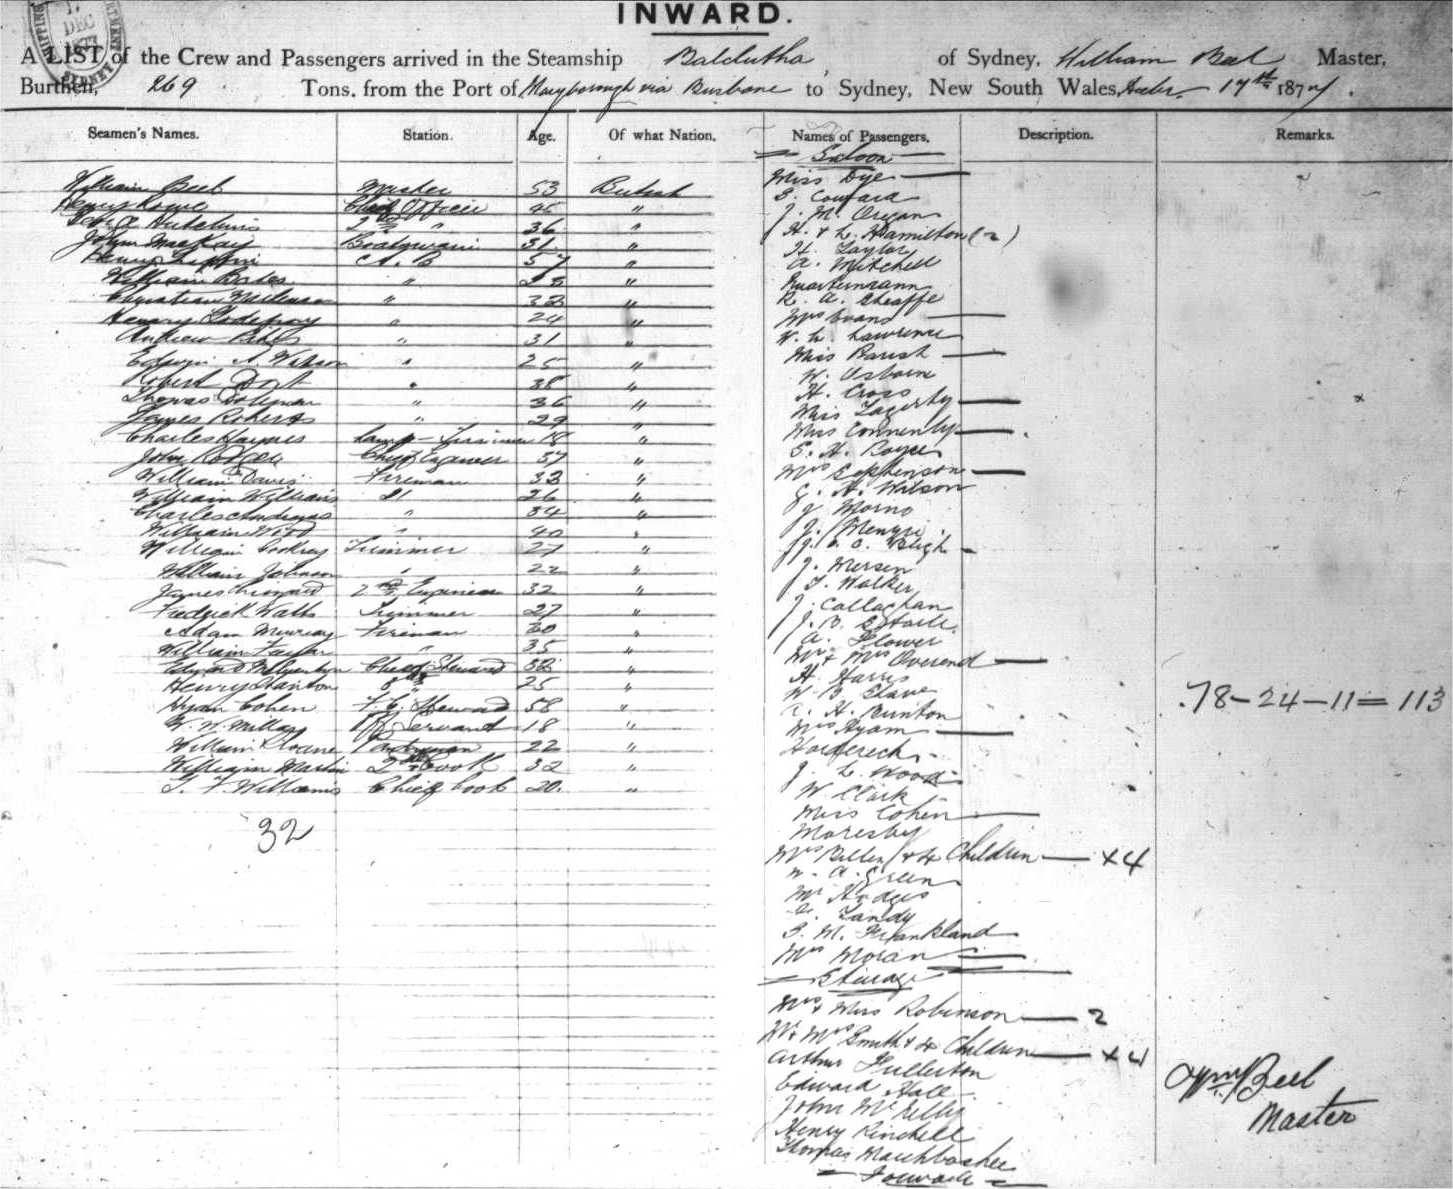 INWARD.
DEC
SYDNEY
A LIST of the Crew and Passengers arrived in the Steamship Balclutha of Sydney, William Beel Master,
Burthen, 269 Tons, from the Port of Maryborough via Brisbane to Sydney, New South Wales, 17th 1877.
Seamen's Names. Station. Age. Of what Nation. Names of Passengers, Description. Remarks.
Saloon
William Beel Master 53 British
Henry Chief Officer 45 "
Hutchins 2nd " 36 "
John MacKay Boatswain 31 "
Henry A.B 57 "
William Bates " "
Christian " 32 "
Henry Godfrey " 24 "
Andrew " 31 "
Edwin A. Watson " 25 "
Robert Dort " 38 "
Thomas Coleman " 36 "
James Roberts " 29 "
Charles Haynes Lamp-Trimmer 18 "
John Chief Engineer 37 "
William Davis Fireman 33 "
William Williams " 26 "
Charles Andrews " 34 "
William Wood " 40 "
William Trimmer 27 "
William Johnson " 22 "
James 2nd Engineer 32 "
Fredrick Watts Trimmer 27 "
Adam Murray Fireman 30 "
William Taylor " 35 "
Edward Chief Steward 32 "
Henry Stanton 2nd " 25 "
Hyam Cohen F. C. Steward 58 "
W. W. Millar Servant 18 "
William Sloane Pantryman 22 "
William Martin 2nd Cook 32 "
T. F. Williams Chief Cook 20. "
32
Miss Dye
S. Coward
J. M. Organ
H. & L. Hamilton (2)
H. Taylor
A. Mitchell
Quartermann
R. A. Sheaffe
Mrs Evans
W. H. Lawrence
Miss Parish
W. Osborne
H. Cross
Miss Fogerty
Miss Connenly
S. A. Royce
Mrs Stephenson
G. A. Wilson
J. Morno
J.
J. Bligh
J. Mersen
T. Walker
J. Callaghan
J. B.
A. Flower
Mr & Mrs Overend
H. Harris
W. B. Slave
H. Bunton
Mrs Hyam
J. L. Wood
W Clark
Miss Cohen
Moresby
Mrs Bellen & 4 Children x4
W. A. Green
Mr Hodges
Landy
S. M. Frankland
Mrs Moran
Steerage
Mrs & Miss Robinson 2
Mr & Mrs Smith & 4 Children x4
Arthur Fullerton
Edward Hall
John
Henry Kinchell
Thomas
Forward
78-24-11=113
Wm Beel
Master